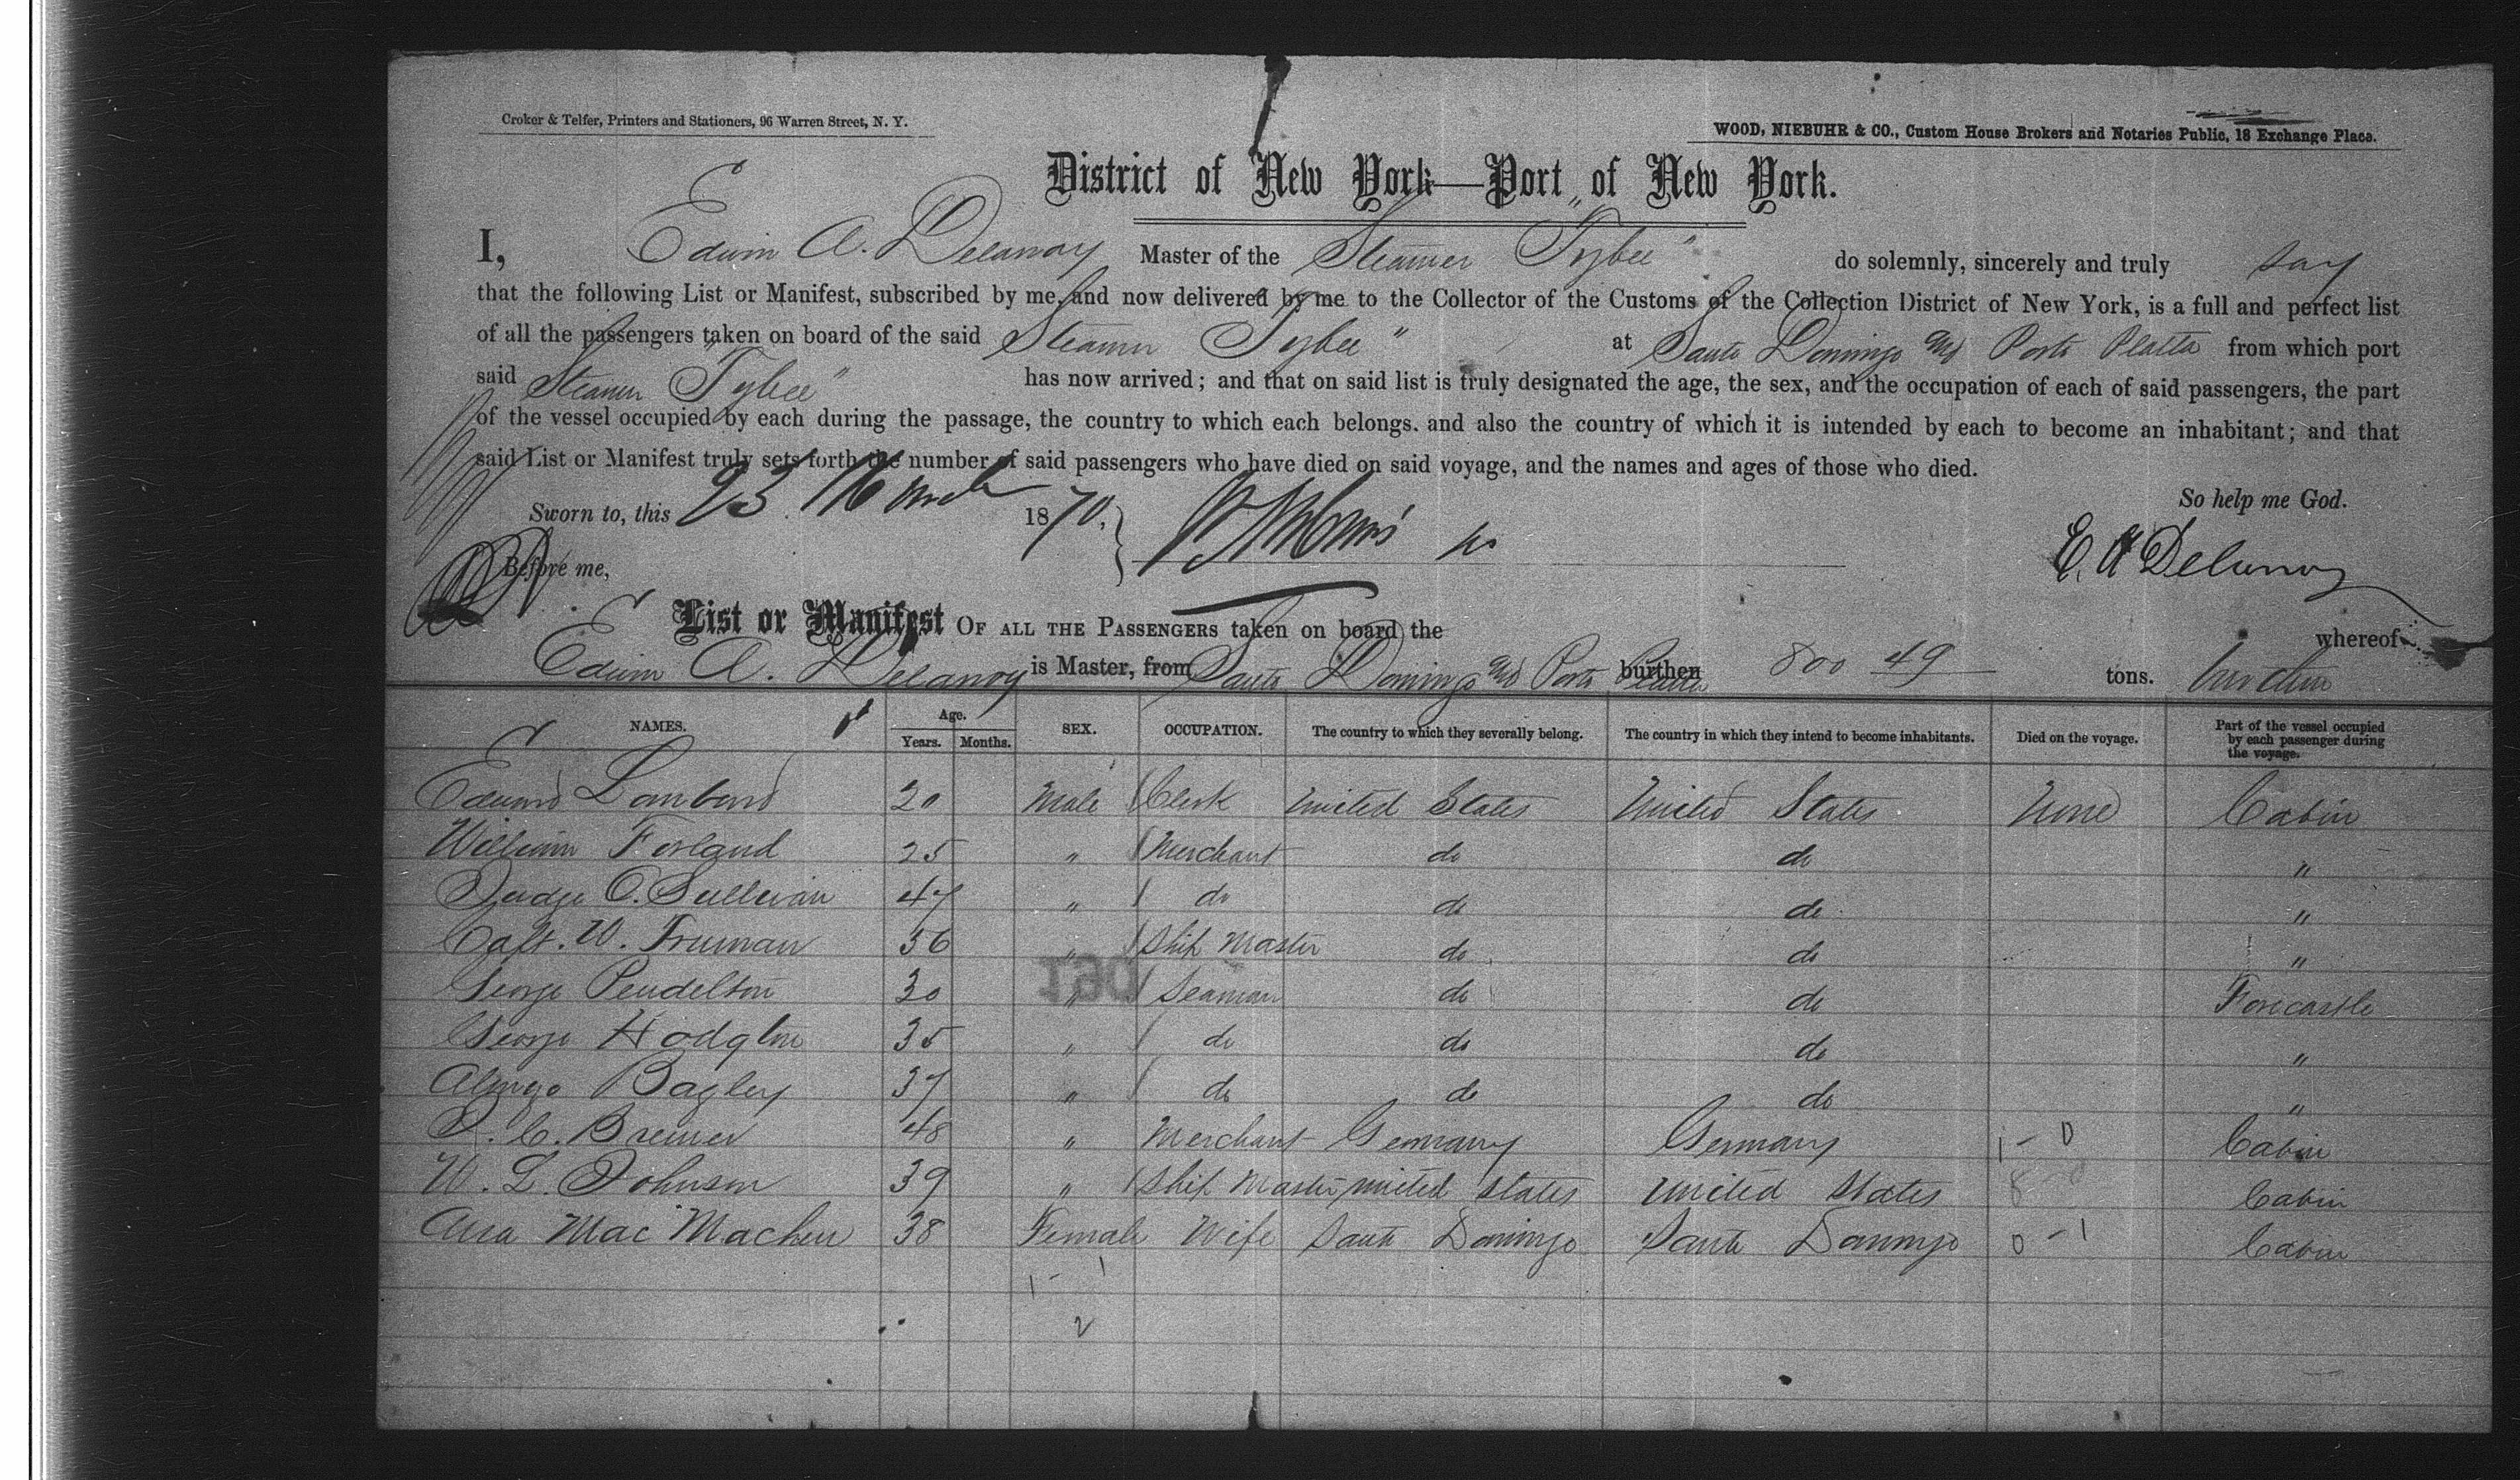 Croker & Telfer, Printers and Stationers, 96 Warren Street, N. Y.
WOOD, NIEBUHR & CO., Custom House Brokers and Notaries Public, 18 Exchange Place.
District of New York—Port of New York.
I, Edwin A. Delanoy Master of the Steamer "Tybee" do solemnly, sincerely and truly say
that the following List or Manifest, subscribed by me, and now delivered by me to the Collector of the Customs of the Collection District of New York, is a full and perfect list
of all the passengers taken on board of the said Steamer "Tybee" at Santo Domingo and Porto Platta from which port
said Steamer "Tybee" has now arrived; and that on said list is truly designated the age, the sex, and the occupation of each of said passengers, the part
of the vessel occupied by each during the passage, the country to which each belongs. and also the country of which it is intended by each to become an inhabitant; and that
said List or Manifest truly sets forth the number of said passengers who have died on said voyage, and the names and ages of those who died.
So help me God.
Sworn to, this 23 March 1870,
E. A Delanoy
Before me,
List or Manifest OF ALL THE PASSENGERS taken on board the whereof
Edwin A. Delanoy is Master, from Santo Domingo and Porto Platta burthen 800 49 tons. burthen
NAMES. Age. Years. Months. SEX. OCCUPATION. The country to which they severally belong. The country in which they intend to become inhabitants. Died on the voyage. Part of the vessel occupied by each passenger during the voyage.
Edward Lombard 20 Male Clerk United States United States None Cabin
William Forland 25 " Merchant do do "
Judge O. Sullivan 47 " do do do "
Capt. W. Truman 56 " Ship Master do do "
George Pendelton 30 " Seaman do do Forecastle
George 35 " do do do "
Bagley 37 " do do do "
C. Bremer 48 " Merchant Germany Germany 1 - 0 Cabin
W. L. Johnson 39 " Ship Master United States United States Cabin
Mac Machen 38 Female Wife Santo Domingo Santo Domingo 0 - 1 Cabin
1 - 1
2